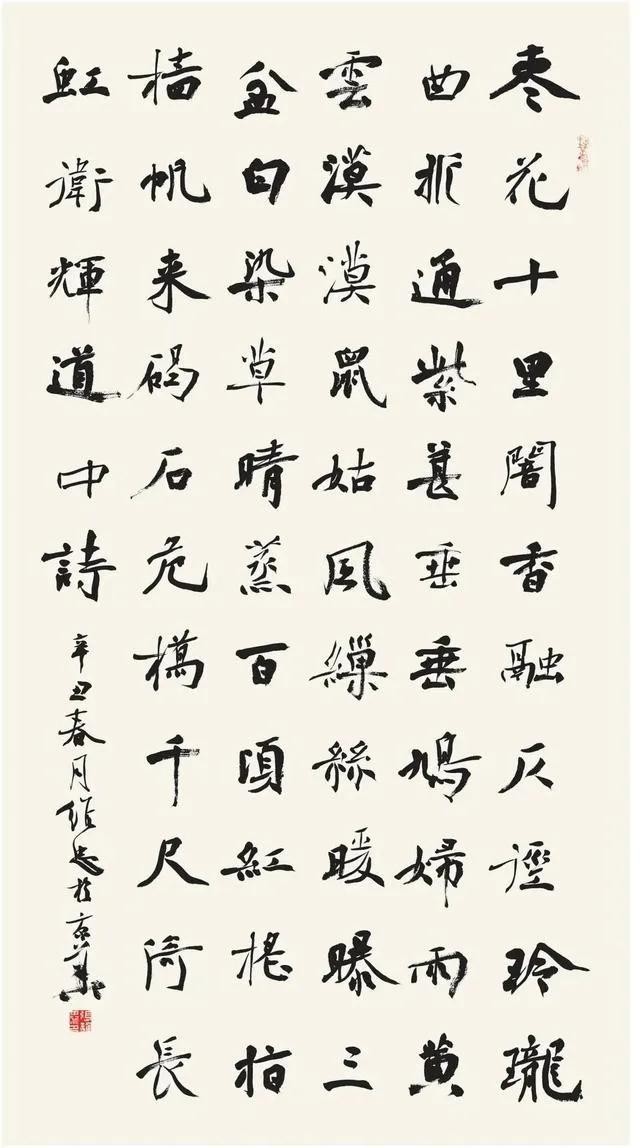 枣花十里闇香融仄徑玲瓏
曲折通紫葚垂垂鳩婦雨黄
雲漠漠鼠姑風繅絲暖曝三
盆白染草晴蒸百頃紅極指
檣帆来碣石危橋千尺倚長
虹衛輝道中詩
辛丑春月維忠於京華